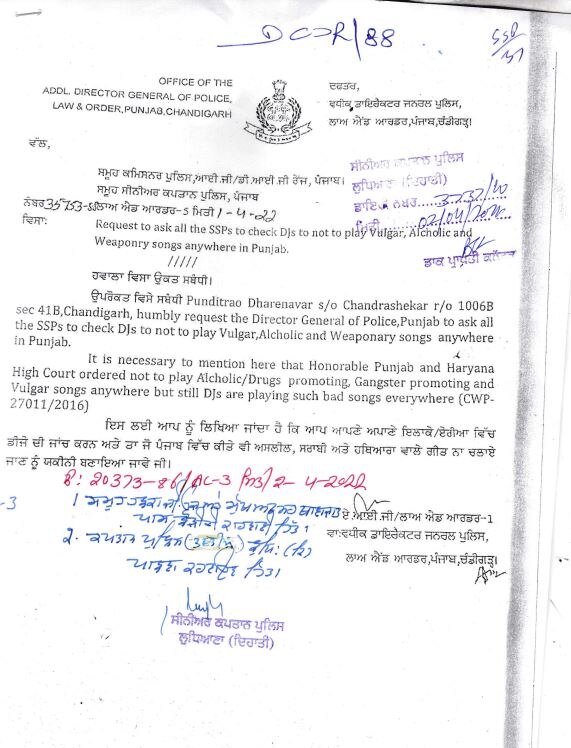 DCOR/88
OFFICE OF THE
ADDL. DIRECTOR GENERAL OF POLICE,
LAW & ORDER,PUNJAB,CHANDIGARH
ਦਫਤਰ,
ਵਧੀਕ ਡਾਇਰੈਕਟਰ ਜਨਰਲ ਪੁਲਿਸ,
ਲਾਅ ਐਂਡ ਆਰਡਰ,ਪੰਜਾਬ,ਚੰਡੀਗੜ੍ਹ।
ਵੱਲ,
ਸਮੂਹ ਕਮਿਸਨਰ ਪੁਲਿਸ,ਆਈ.ਜੀ/ਡੀ.ਆਈ.ਜੀ ਰੇਂਜ, ਪੰਜਾਬ।
ਸਮੂਹ ਸੀਨੀਅਰ ਕਪਤਾਨ ਪੁਲਿਸ, ਪੰਜਾਬ
ਸੀਨੀਅਰ ਕਪਤਾਨ ਪੁਲਿਸ
ਲੁਧਿਆਣਾ (ਦਿਹਾਤੀ)
ਡਾਇਰੀ ਨੰਬਰ
ਮਿਤੀ 02/04/
ਡਾਕ ਪ੍ਰਾਪਤੀ ਕਲਰਕ
ਨੰਬਰ ਲਾਅ ਐਂਡ ਆਰਡਰ-5 ਮਿਤੀ 1-4-22
ਵਿਸਾ: Request to ask all the SSPs to check DJs to not to play Vulgar, Alcholic and
Weaponry songs anywhere in Punjab.
/////
ਹਵਾਲਾ ਵਿਸਾ ਉਕਤ ਸਬੰਧੀ।
ਉਪਰੋਕਤ ਵਿਸੇ ਸਬੰਧੀ Punditrao Dharenavar s/o Chandrashekar r/o 1006B
sec 41B,Chandigarh, humbly request the Director General of Police,Punjab to ask all
the SSPs to check DJs to not to play Vulgar,Alcholic and Weaponary songs anywhere
in Punjab.
It is necessary to mention here that Honorable Punjab and Haryana
High Court ordered not to play Alcholic/Drugs promoting, Gangster promoting and
Vulgar songs anywhere but still DJs are playing such bad songs everywhere (CWP-
27011/2016)
ਇਸ ਲਈ ਆਪ ਨੂੰ ਲਿਖਿਆ ਜਾਂਦਾ ਹੈ ਕਿ ਆਪ ਆਪਣੇ ਅਪਾਣੇ ਇਲਾਕੇ/ਏਰੀਆ ਵਿੱਚ
ਡੀਜੇ ਦੀ ਜਾਂਚ ਕਰਨ ਅਤੇ ਤਾ ਜੋ ਪੰਜਾਬ ਵਿੱਚ ਕੀਤੇ ਵੀ ਅਸਲੀਲ, ਸਰਾਬੀ ਅਤੇ ਹਥਿਆਰਾ ਵਾਲੇ ਗੀਤ ਨਾ ਚਲਾਏ
ਜਾਣ ਨੂੰ ਯਕੀਨੀ ਬਣਾਇਆ ਜਾਵੇ ਜੀ।
ਨੰ: 20373-86/AC-3 ਮਿਤੀ 2-4-2022
ਏ.ਆਈ.ਜੀ/ਲਾਅ ਐਂਡ ਆਰਡਰ-1
ਵਾ:ਵਧੀਕ ਡਾਇਰੈਕਟਰ ਜਨਰਲ ਪੁਲਿਸ,
ਲਾਅ ਐਂਡ ਆਰਡਰ,ਪੰਜਾਬ,ਚੰਡੀਗੜ੍ਹ।
ਸੀਨੀਅਰ ਕਪਤਾਨ ਪੁਲਿਸ
ਲੁਧਿਆਣਾ (ਦਿਹਾਤੀ)